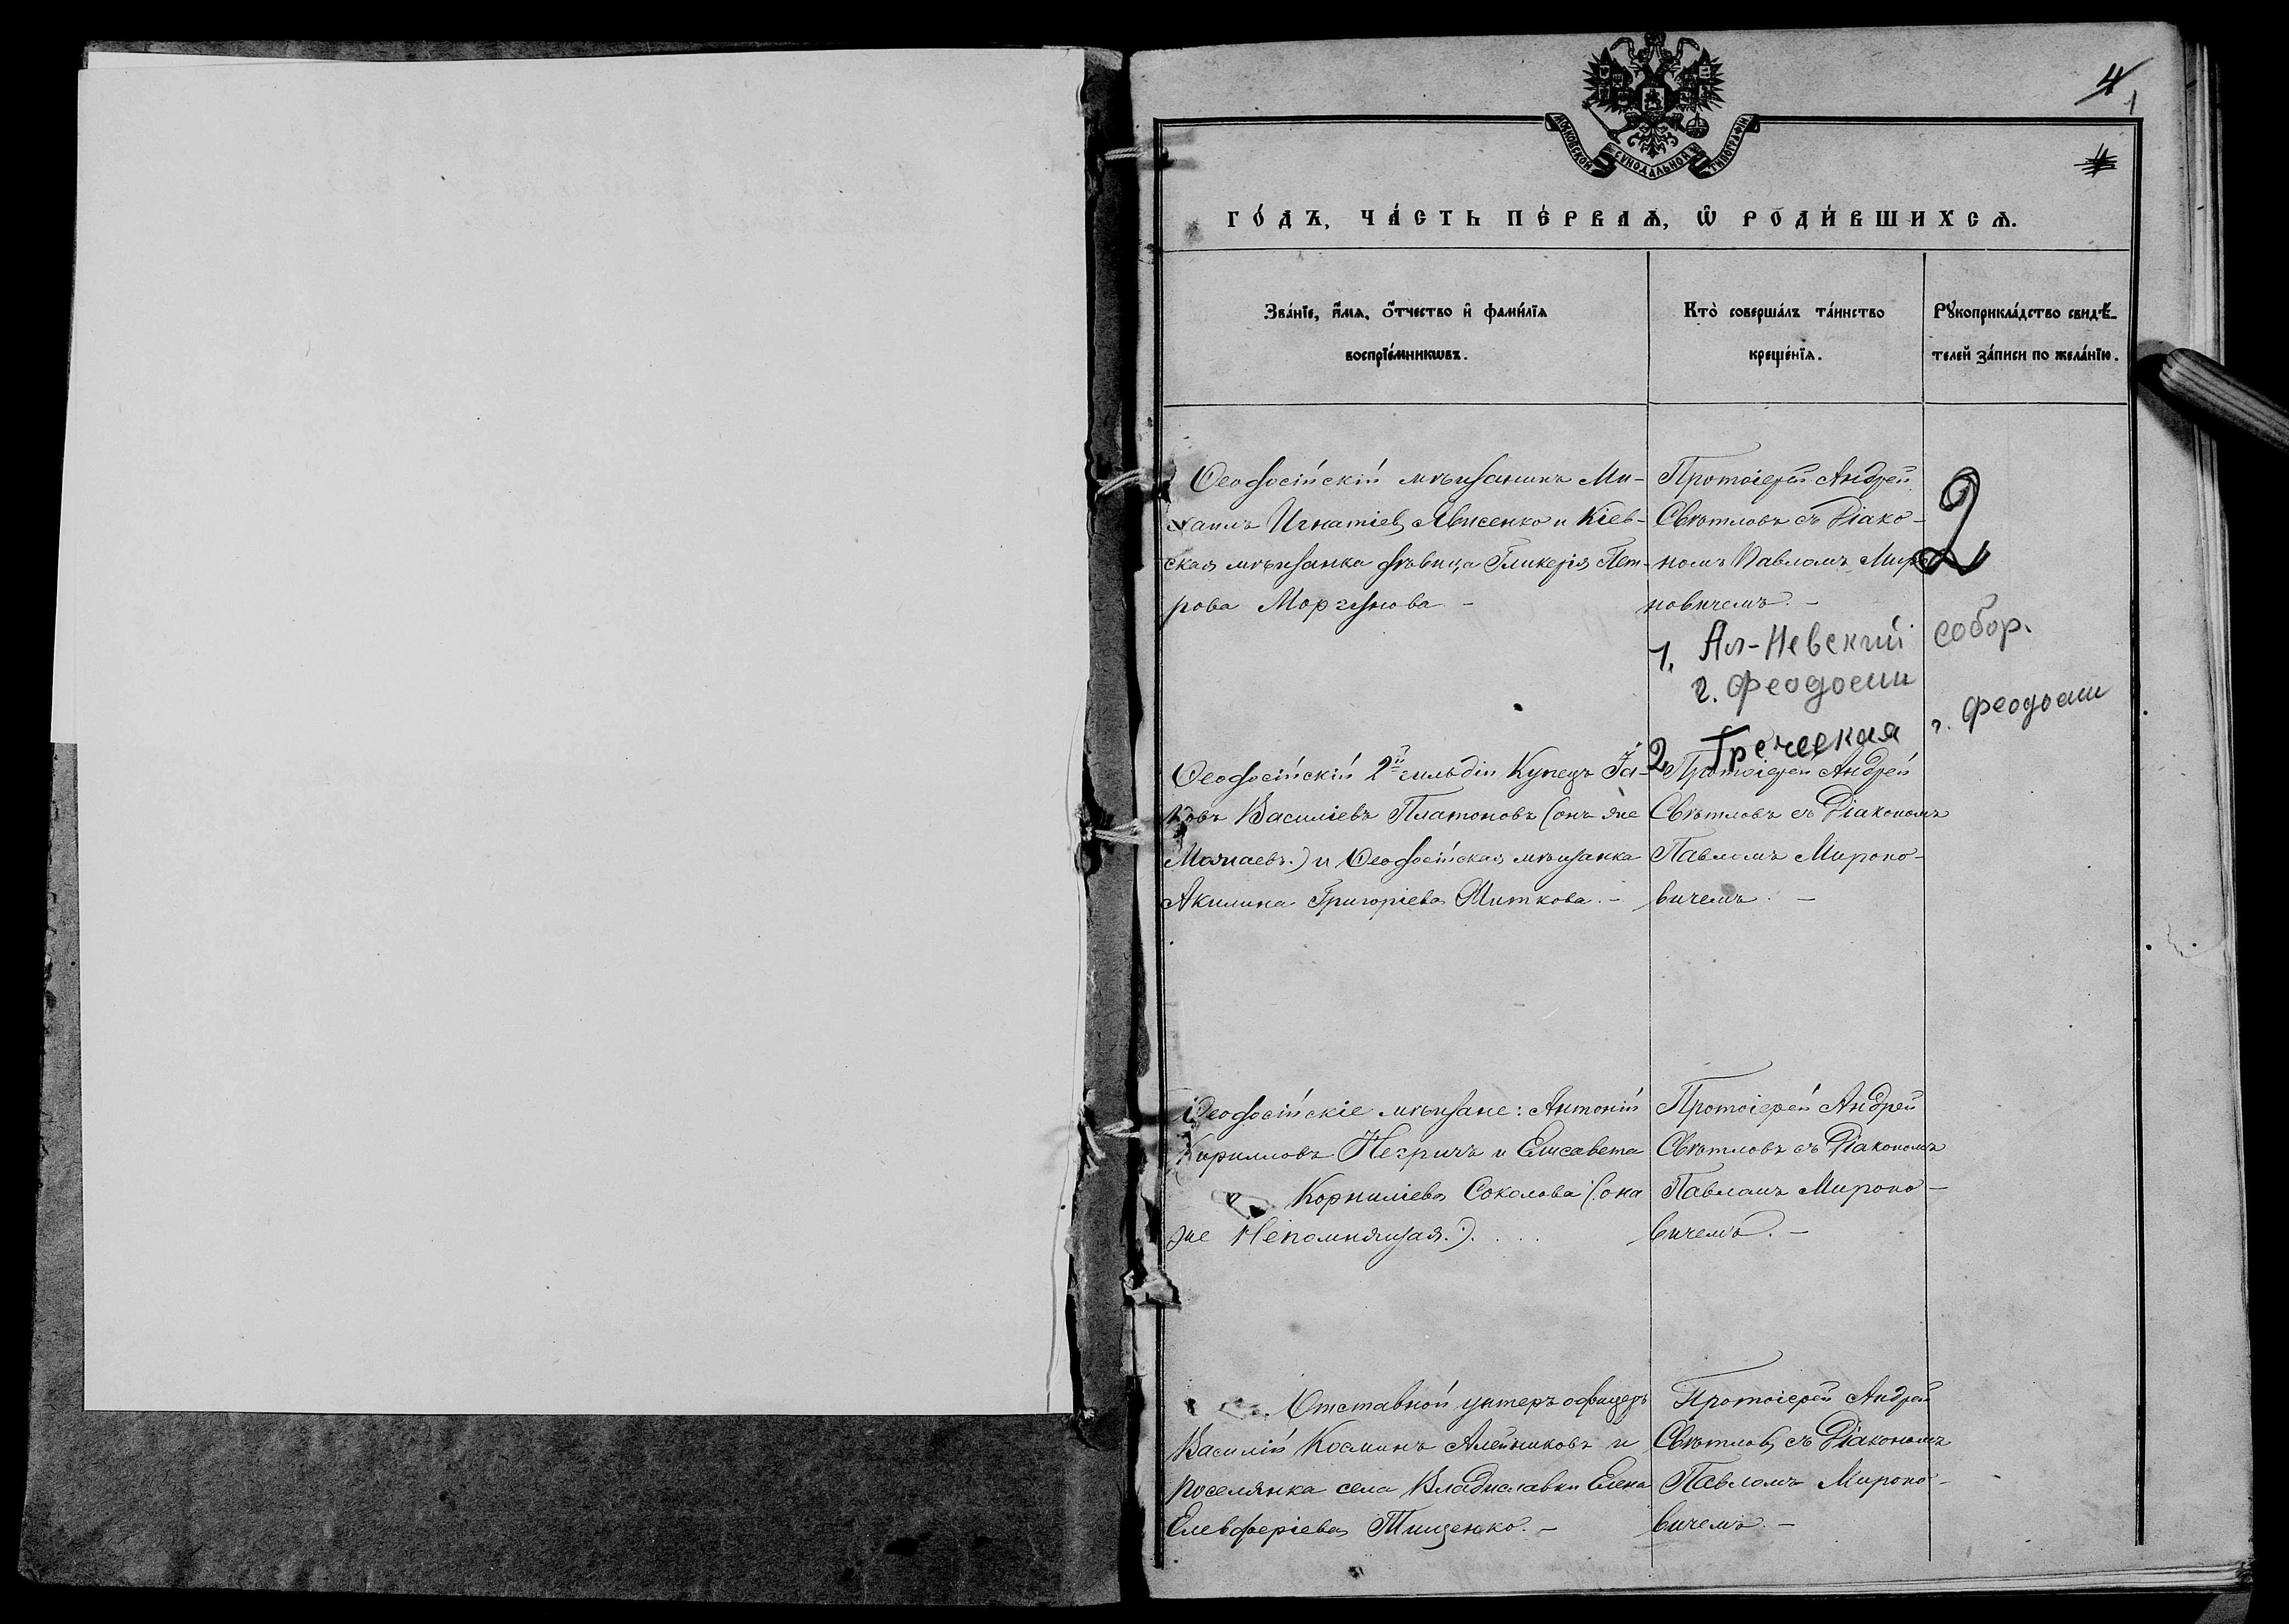 4
1
МОСКОВСКОЙ СУНОДАЛЬНОЙ ТИПОГРАФІИ
ГО́ДЪ, ЧА́СТЬ ПЕ́РВАѦ, Ѡ҆ РОДИ́ВШИХСѦ.
Зва́нїе, и҆́мѧ, ѻ҆́тчество и҆ фами́лїѧ
воспрїе́мникѡвъ.
Кто̀ соверша́лъ та́инство
креще́нїѧ.
Рꙋкоприкла́дство свидѣ́-
телей за́писи по жела́нїю.
Ѳеодосійскій мѣщанинъ Ми-
хаилъ Игнатіев Лысенко и Кіев-
ская мѣщанка дѣвица Гликерія Пет-
рова Моргунова -
Протоіерей Андрей
Свѣтловъ съ Діако-
номъ Павломъ Миро
новичемъ. -
2
1. Ал-Невский собор.
г. Феодосии
2 Греческая г. Феодосии
Ѳеодосійскій 2й гильдіи Купецъ Іа-
ковъ Василіевъ Платоновъ (онъ же
) и Ѳеодосійская мѣщанка
Акилина Григоріева Миткова. -
Протоіерей Андрей
Свѣтловъ съ Діакономъ
Павломъ Мироно-
вичемъ. -
Ѳеодосійскіе мѣщане: Антоній
Кирилловъ Негричъ и Елисавета
Корниліева Соколова (она
же Непомнящая.). . . .
Протоіерей Андрей
Свѣтловъ съ Діакономъ
Павломъ Мироно-
вичемъ. -
Отставной унтеръ офицеръ
Василій Косминъ Алейниковъ и
поселянка села Владиславки Елена
Елевферіева Тищенко. -
Протоіерей Андрей
Свѣтлов, съ Діакономъ
Павломъ Мироно-
вичемъ. -